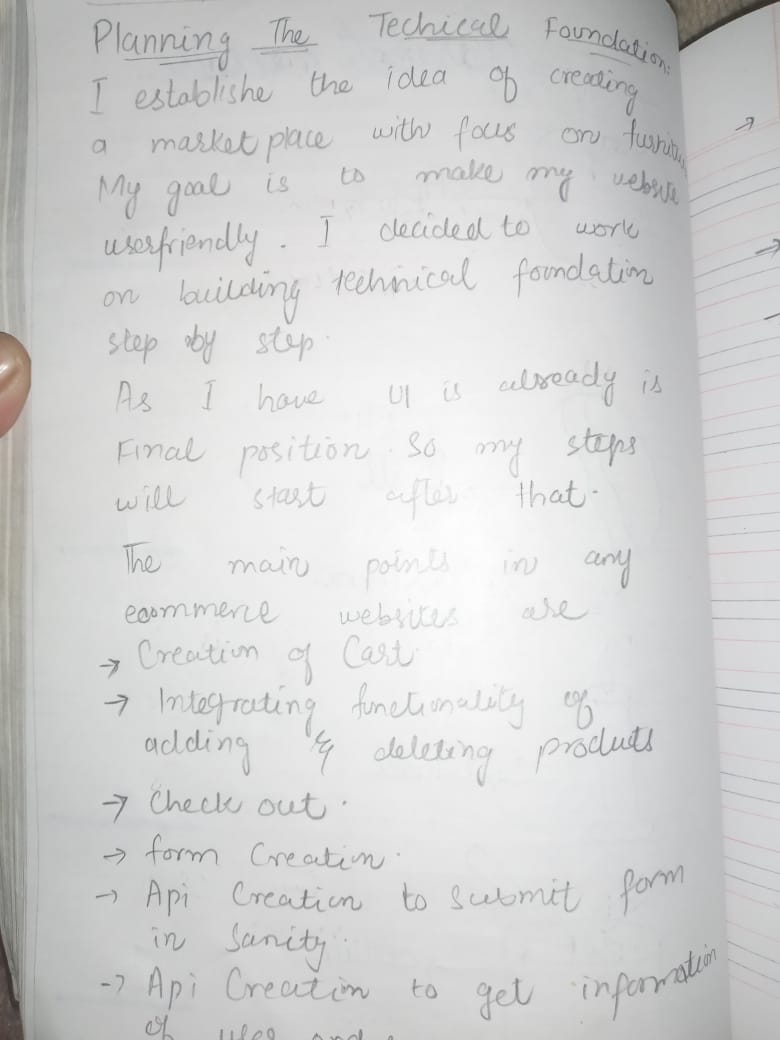 Planning The Techical Foundation:
I establishe the idea of creading
a market place with focus on furnitu
My goal is to make my website
userfriendly. I decided to work
on building technical foundation
step by step.
As I have UI is already is
Final position. So my steps
will start after that.
The main points in any
ecommerce websites are
→ Creation of Cart.
→ Integrating functionality of
adding & deleting products
→ Check out.
→ form Creation.
→ Api Creation to Submit form
in Sanity.
→ Api Creation to get information
of user and